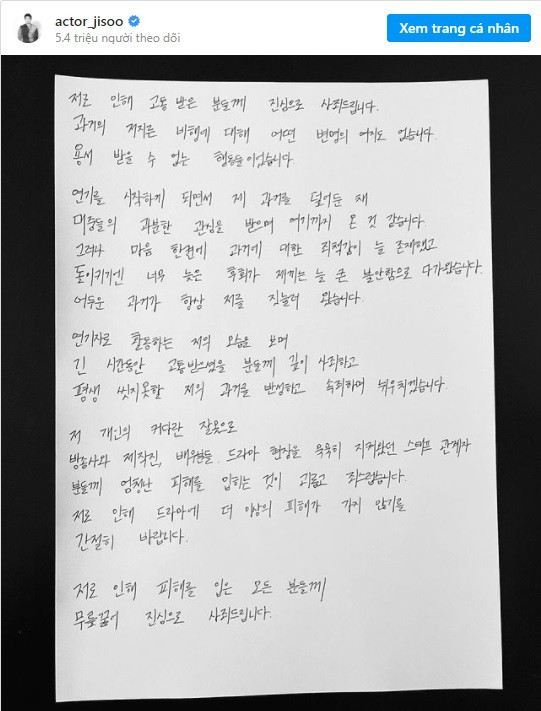 actor_jisoo
5.4 triệu người theo dõi
Xem trang cá nhân
저로 인해 고통 받은 분들께 진심으로 사죄드립니다.
과거의 저지른 비행에 대해 어떤 변명의 여지도 없습니다.
용서 받을 수 없는 행동들이었습니다.
연기를 시작하게 되면서 제 과거를 덮어둔 채
대중들의 과분한 관심을 받으며 여기까지 온 것 같습니다.
그러나 마음 한켠에 과거에 대한 죄책감이 늘 존재했고
돌이키기엔 너무 늦은 후회가 저에게는 늘 큰 불안함으로 다가왔습니다.
어두운 과거가 항상 저를 짓눌러 왔습니다.
연기자로 활동하는 저의 모습을 보며
긴 시간동안 고통받으셨을 분들께 깊이 사죄하고
평생 씻지못할 저의 과거를 반성하고 속죄하며 뉘우치겠습니다.
저 개인의 커다란 잘못으로
방송사와 제작진, 배우분들, 드라마 현장을 묵묵히 지켜왔던 스태프 관계자
분들께 엄청난 피해를 입히는 것이 괴롭고 죄스럽습니다.
저로 인해 드라마에 더 이상의 피해가 가지 않기를
간절히 바랍니다.
저로 인해 피해를 입은 모든 분들께
무릎꿇어 진심으로 사죄드립니다.